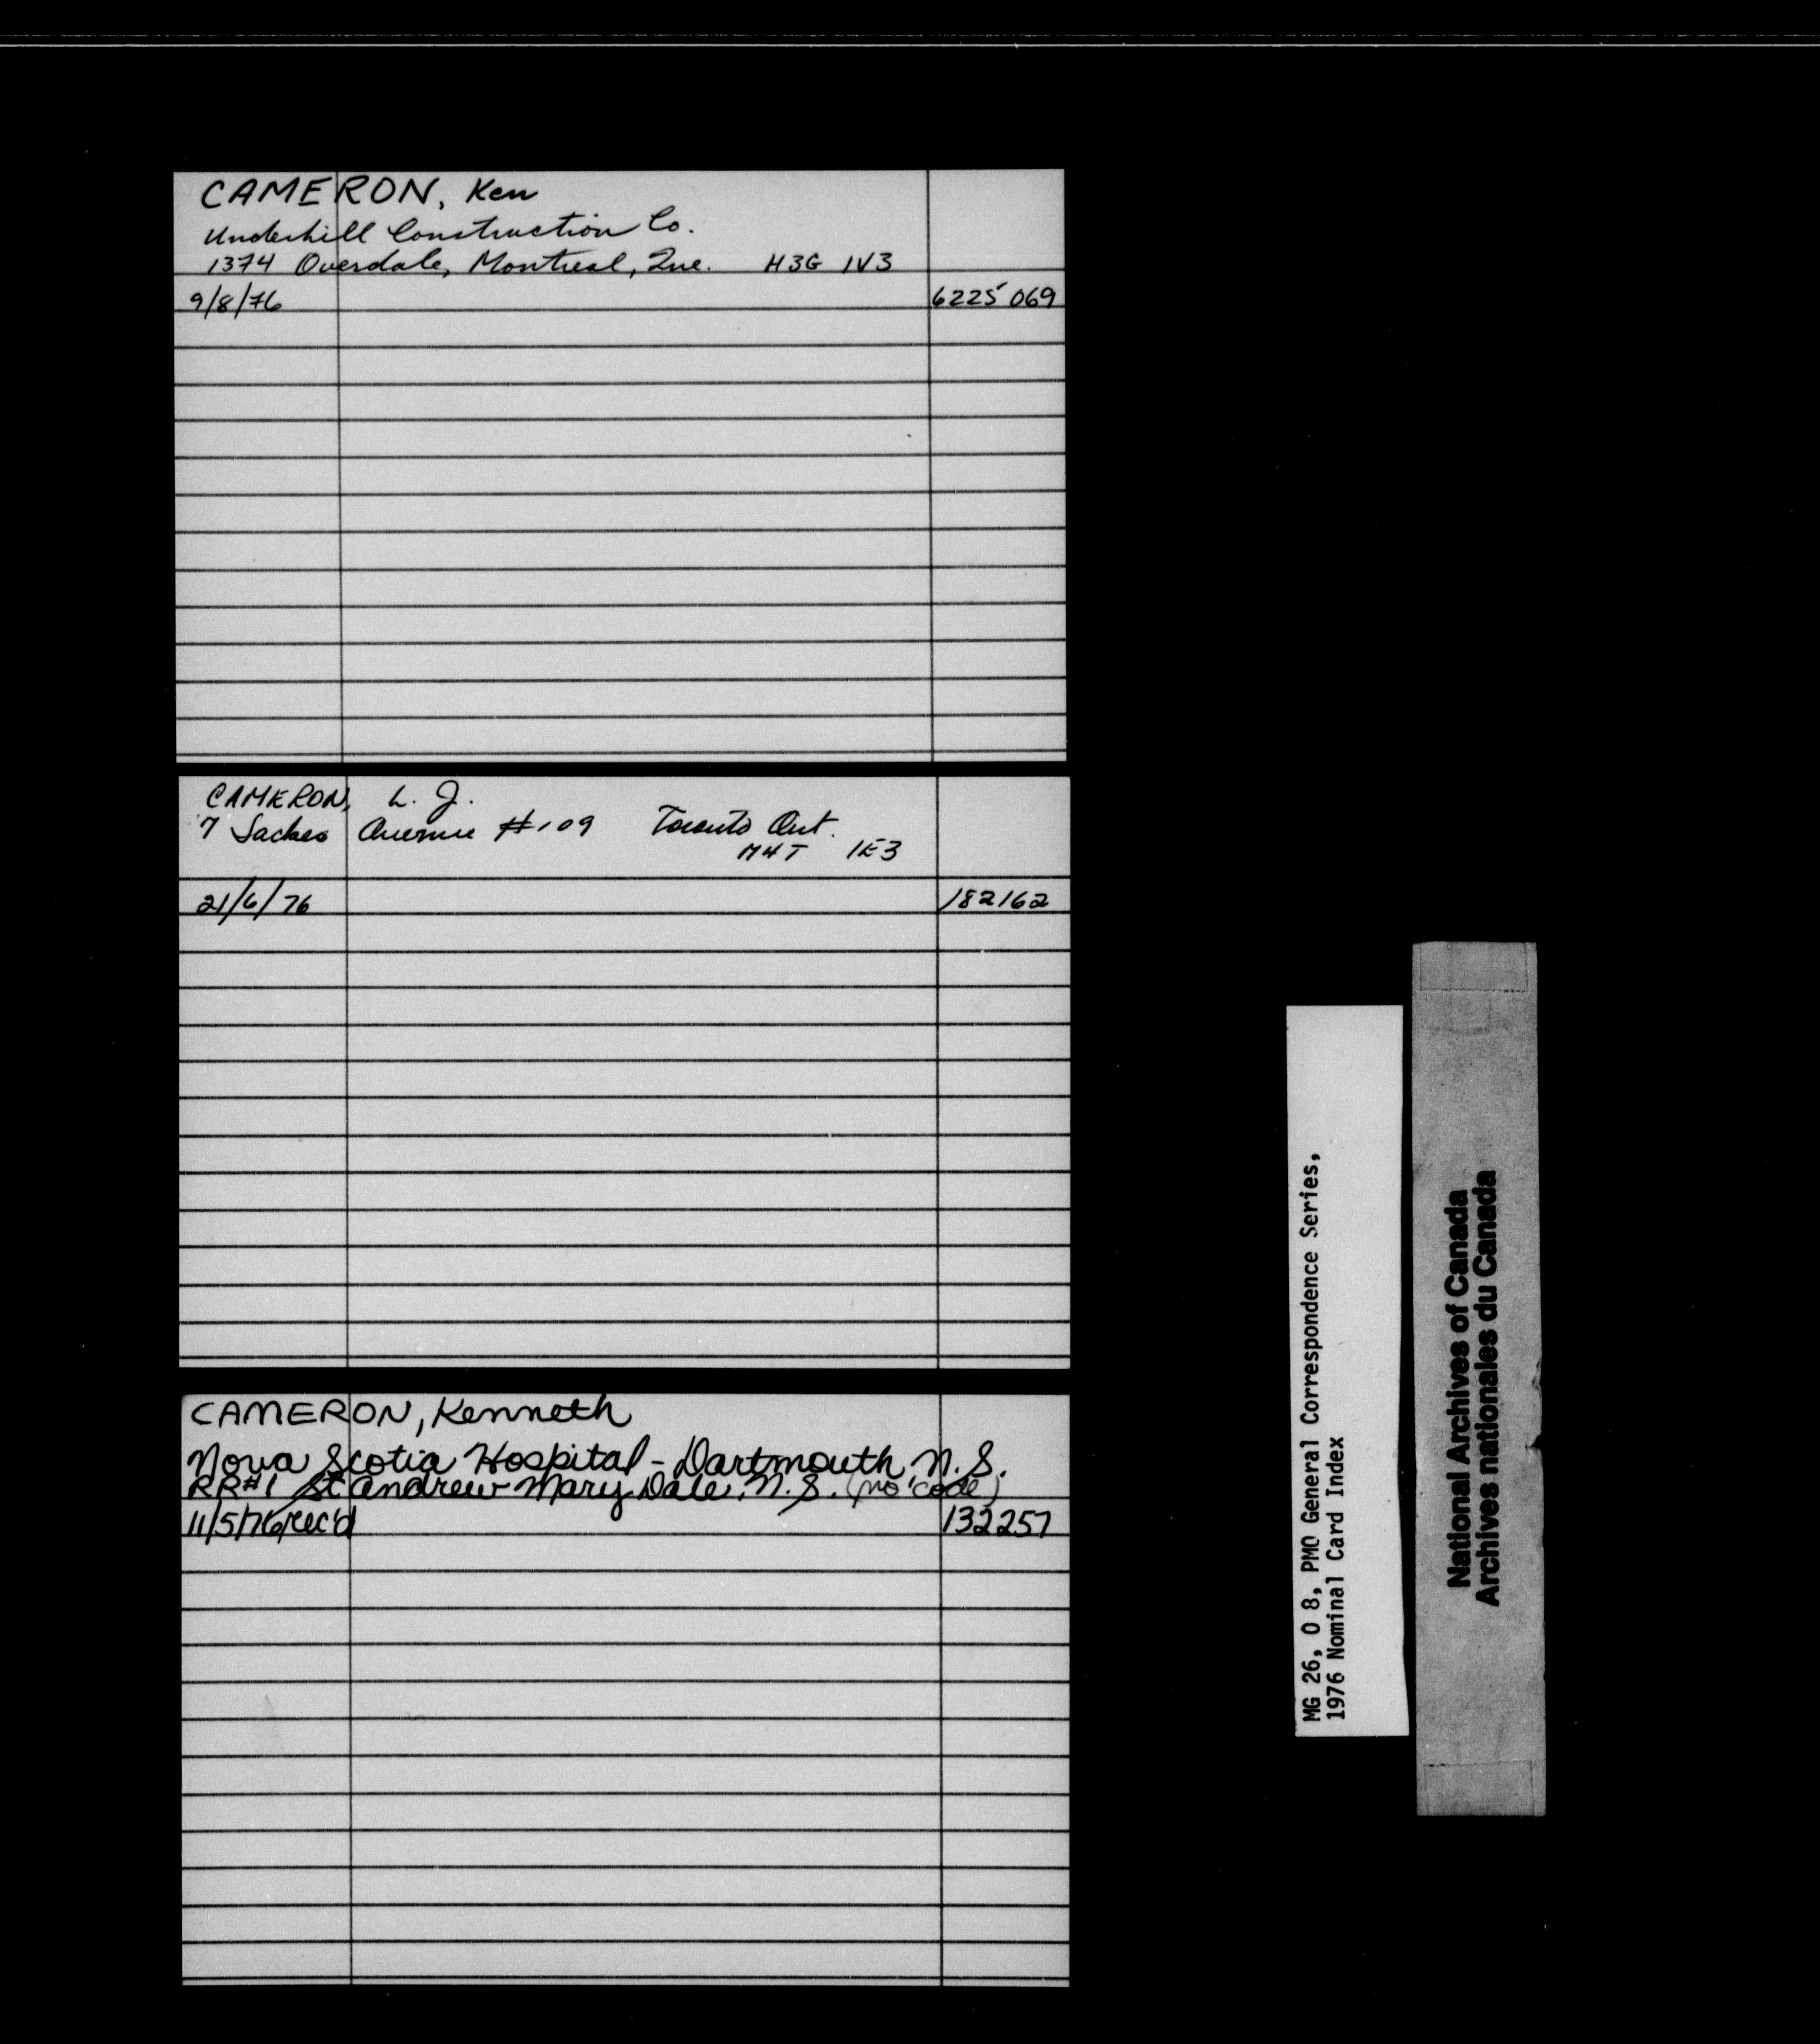 CAMERON, Ken
Underhill Construction Co.
1374 Overdale, Montreal, Que. H3G 1V3
9/8/76 6225 069
CAMERON, L. J.
7 Jackes Avenue #109 Toronto Ont.
M4T 1E3
21/6/76 182162
CAMERON, Kenneth
Nova Scotia Hospital - Dartmouth, N.S.
RR#1 St andrew Mary Dale, N.S. (no code)
11/5/76/rec'd 132257
MG 26, O 8, PMO General Correspondence Series,
1976 Nominal Card Index
National Archives of Canada
Archives nationales du Canada